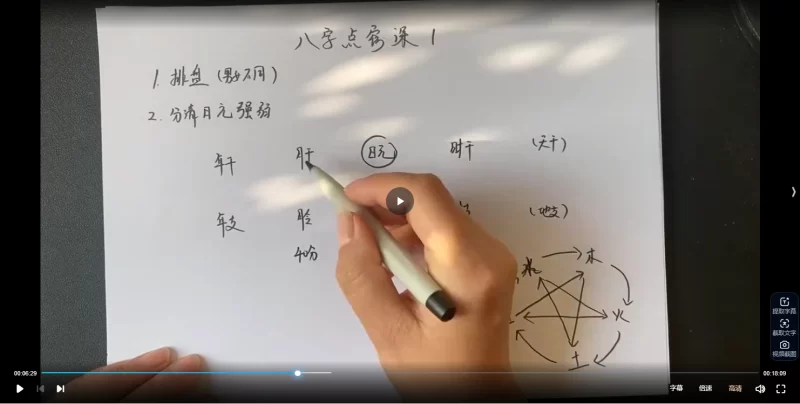 八字点窍课1
1. 排盘(男女不同)
2. 分清日元强弱
年干 月干 日元 时干 (天干)
年支 (地支)
40分
水 木
火
土
提取字幕
截取文字
视频截图
00:06:29
00:18:09
字幕 倍速 高清